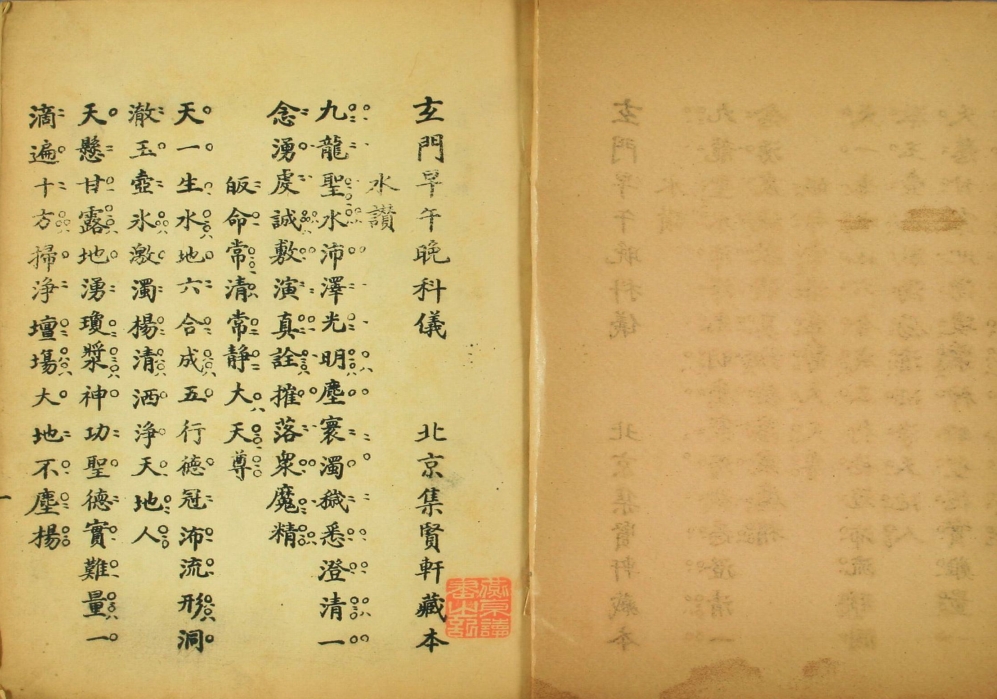 玄門早午晚科儀　北京集賢軒藏本
水讚
九龍聖水沛澤光明塵寰濁穢悉澄清一
念湧虔誠敷演真詮摧落衆魔精
皈命常清常靜大天尊
天一生水地六合成五行德冠沛流形洞
澈玉壺氷激濁楊清洒淨天地人
天懸甘露地湧瓊漿神功聖德實難量一
滴遍十方掃淨壇場大地不塵楊